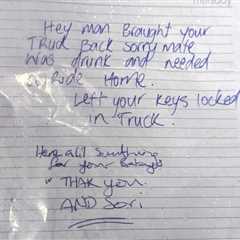 Hey man Braught your
TRUCK Back sorry mate
Was drunk and needed
Ride Home.
Left your keys locked
in Truck.
Heres alil Sumthing
for your
THAK you
AND Sori